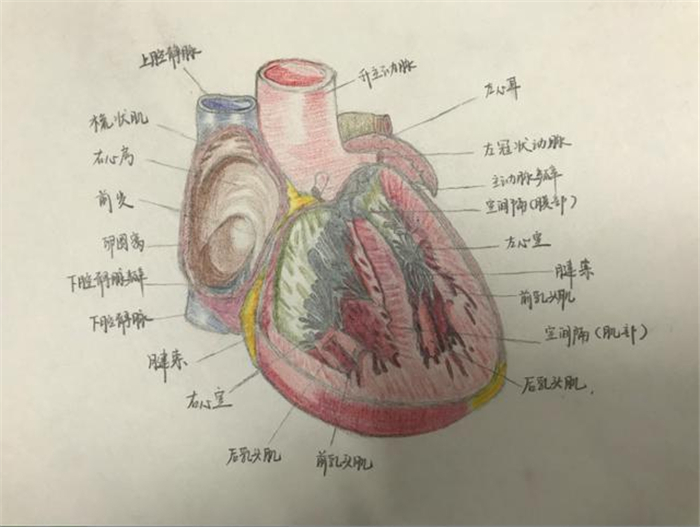 上腔静脉
升主动脉
左心耳
梳状肌
右心房
左冠状动脉
前尖
主动脉瓣
室间隔(膜部)
卵圆窝
左心室
下腔静脉瓣
腱索
前乳头肌
下腔静脉
室间隔(肌部)
腱索
后乳头肌.
右心室
后乳头肌
前乳头肌